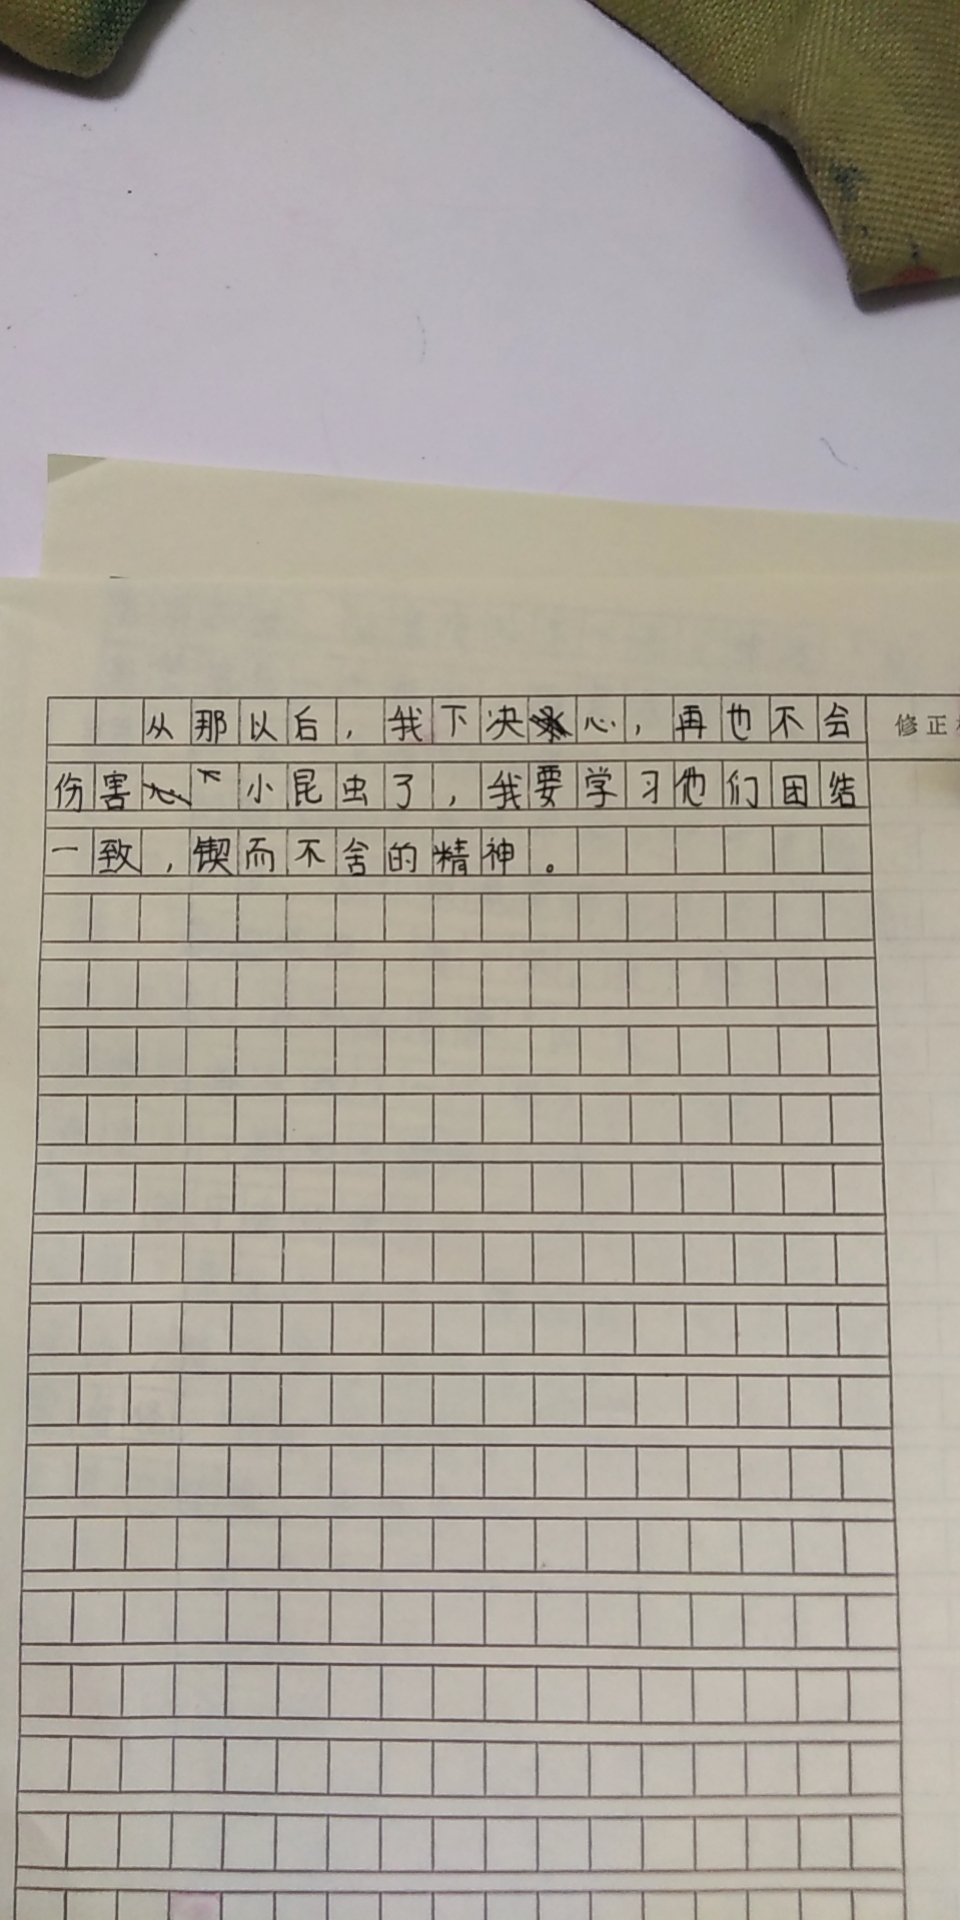 从那以后，我下决心，再也不会 修正
伤害小昆虫了，我要学习他们团结
一致，锲而不舍的精神。